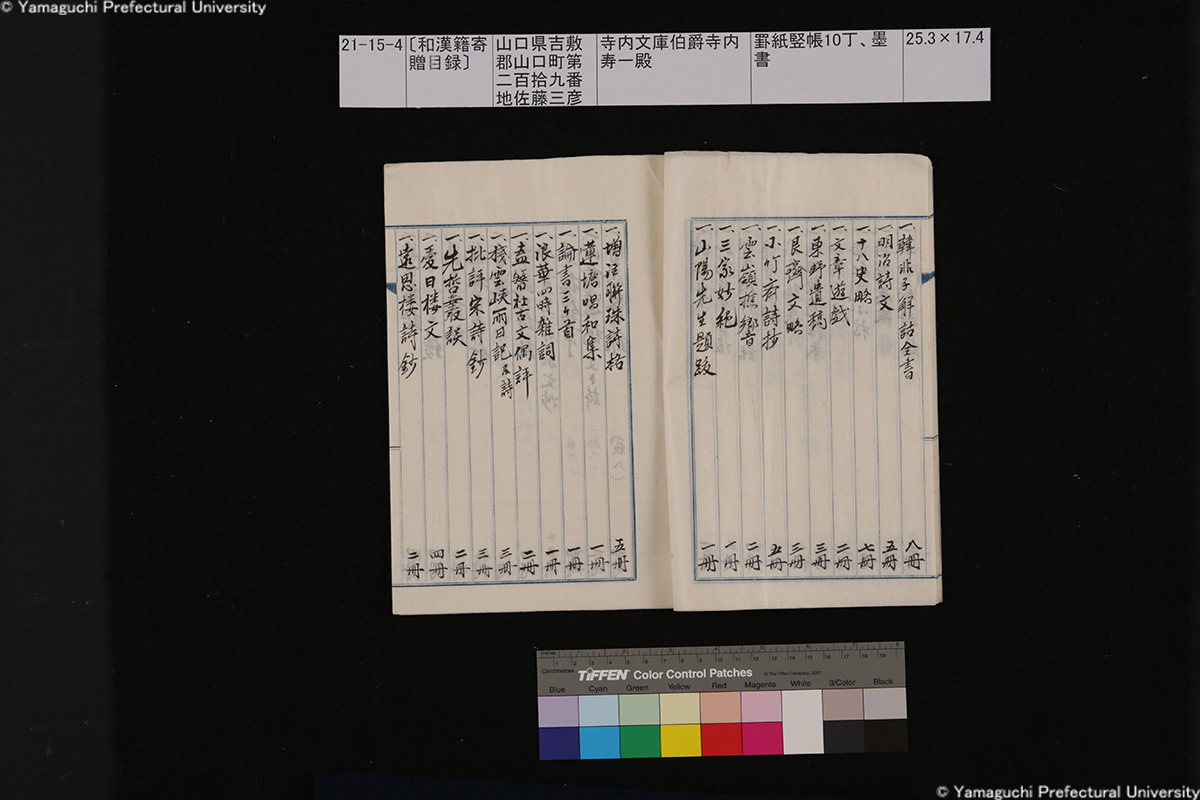 © Yamaguchi Prefectural University
21-15-4
〔和漢籍寄
贈目録〕
山口県吉敷
郡山口町第
二百拾九番
地佐藤三彦
寺内文庫伯爵寺内
寿一殿
罫紙竪帳10丁、墨
書
25.3×17.4
一、韓非子解詁全書 八冊
一、明治詩文 五冊
一、十八史略 七冊
一、文章遊戯 二冊
一、東野遺稿 三冊
一、艮齋文略 三冊
一、小竹斎詩抄 五冊
一、雲嶺樵響 二冊
一、三家妙絶 一冊
一、山陽先生題跋 一冊
一、増註聯珠詩格 五冊
一、蓮塘唱和集 一冊
一、論書三十首 一冊
一、浪華四時雑詞 一冊
一、盍簪社古文偶評 二冊
一、棧雲峡雨日記及詩 三冊
一、批評宋詩鈔 三冊
一、先哲叢談 二冊
一、愛日楼文 四冊
一、遠思楼詩鈔 二冊
Inches
Centimetres
TIFFEN Color Control Patches
© The Tiffen Company, 2007
Blue Cyan Green Yellow Red Magenta White 3/Color Black
© Yamaguchi Prefectural University